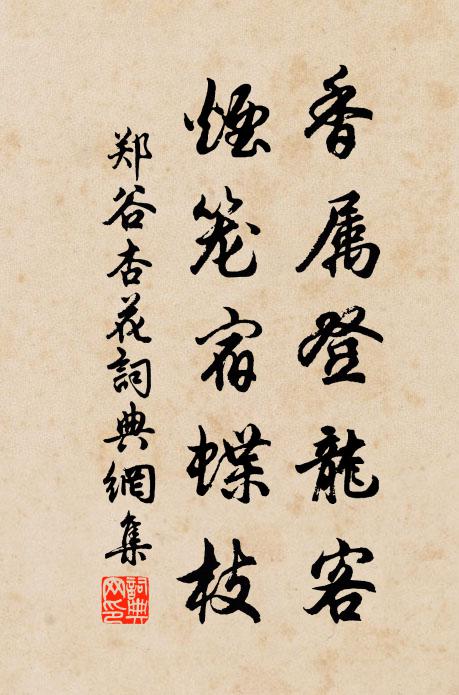 香属登龍客
煙笼宿蝶枝
郑谷杏花詞典網集
詞典網印